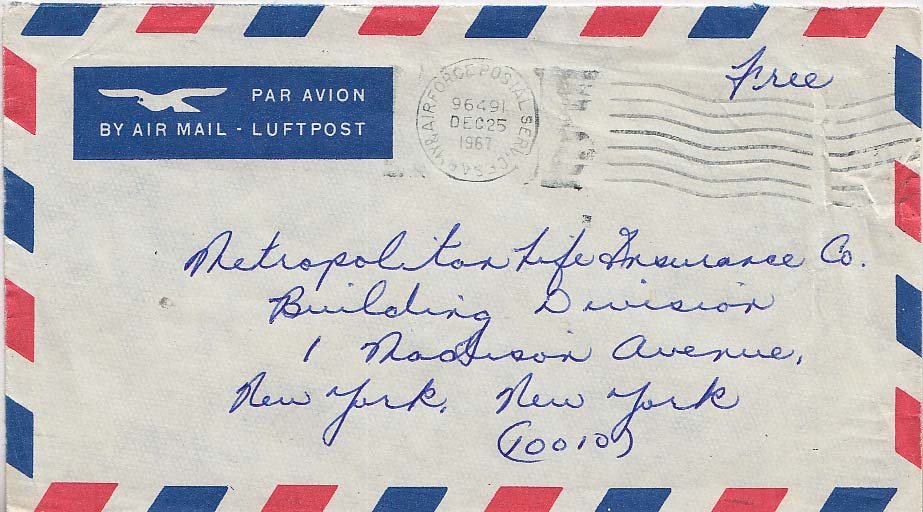 Free
PAR AVION
BY AIR MAIL - LUFTPOST
AIR FORCE POSTAL SERVICE
96491
DEC 25
1967
Metropolitan Life Insurance Co.
Building Division
1 Madison Avenue,
New York, New York
(10010)